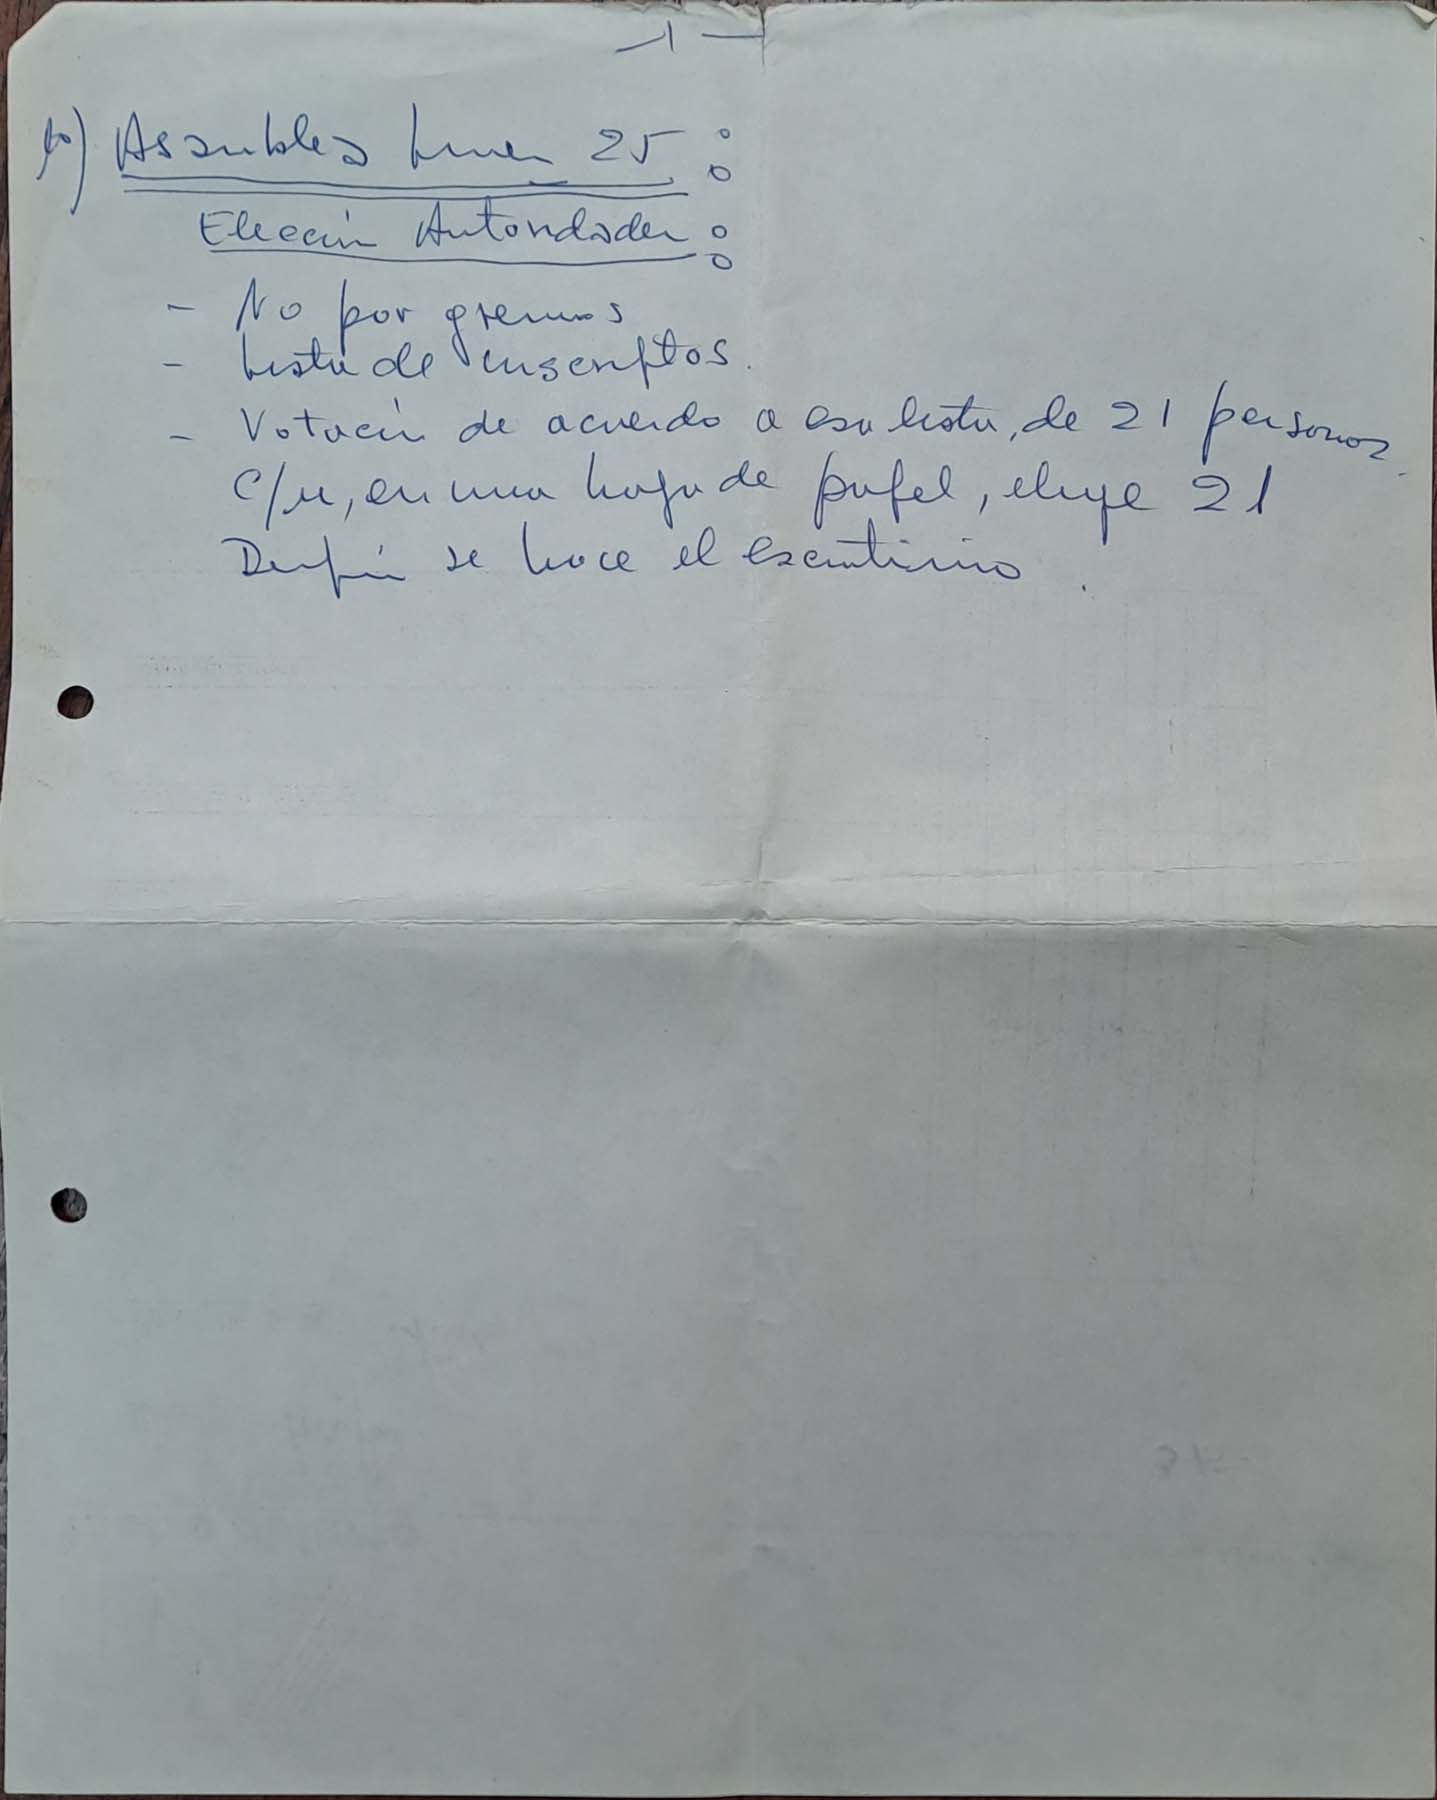 - 1 -
Asamblea Lunes 25 :
Elección Autoridades :
- No por gremios
- Lista de inscriptos.
- Votación de acuerdo a esa lista, de 21 personas.
c/u, en una hoja de papel, elige 21
Después se hace el escrutinio.